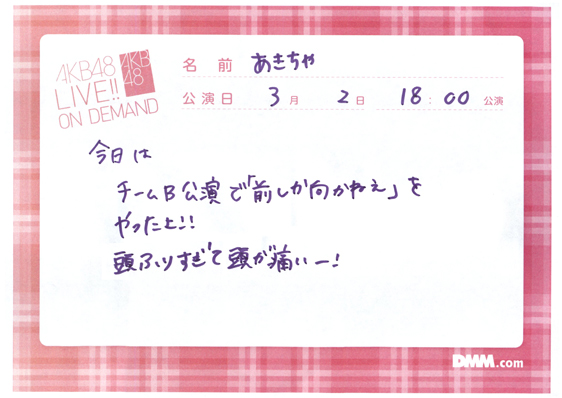 AKB48
LIVE!!
ON DEMAND
AKB
48
名前 あきちゃ
公演日 3月 2日 18:00 公演
今日は
チームB公演で「前しか向かねえ」を
やったよ!!
頭ふりすぎて頭が痛いー!
DMM.com